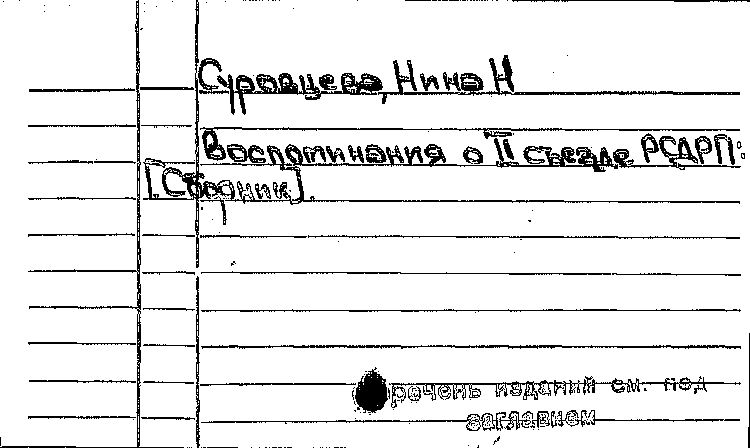 Суровцева, Нина Н
Воспоминания о II съезде РСДРП:
[Сборник].
речень изданий см. под
заглавием